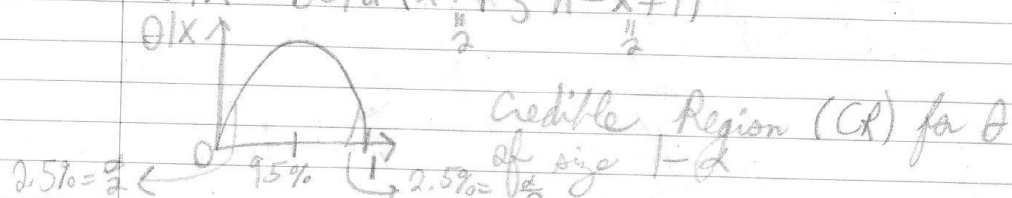 θ|X
= 2 = 2
Credible Region (CR) for θ
of size 1-α
0 95% 1
2.5% = α/2
2.5% = α/2